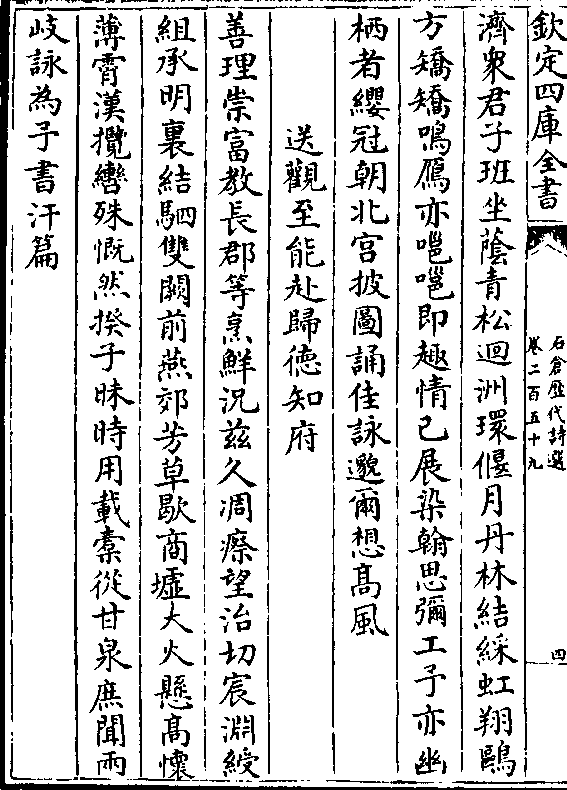 欽定四庫全書
石倉歷代詩選
卷二百五十九
四
濟衆君子班坐蔭青松迴洲環偃月丹林結綵虹翔鷗
方矯矯鳴鴈亦嗈嗈即趣情已展染翰思彌工予亦幽
栖者纓冠朝北宮披圖誦佳詠邈爾想髙風
送觀至能赴歸徳知府
善理崇富教長郡等烹鮮況兹久凋瘵望治切宸淵綬
組承明裏結駟雙闕前燕郊芳草歇商墟大火懸髙懷
薄霄漢攬轡殊慨然揆予昧時用載橐從甘泉庶聞兩
岐詠為子書汗篇